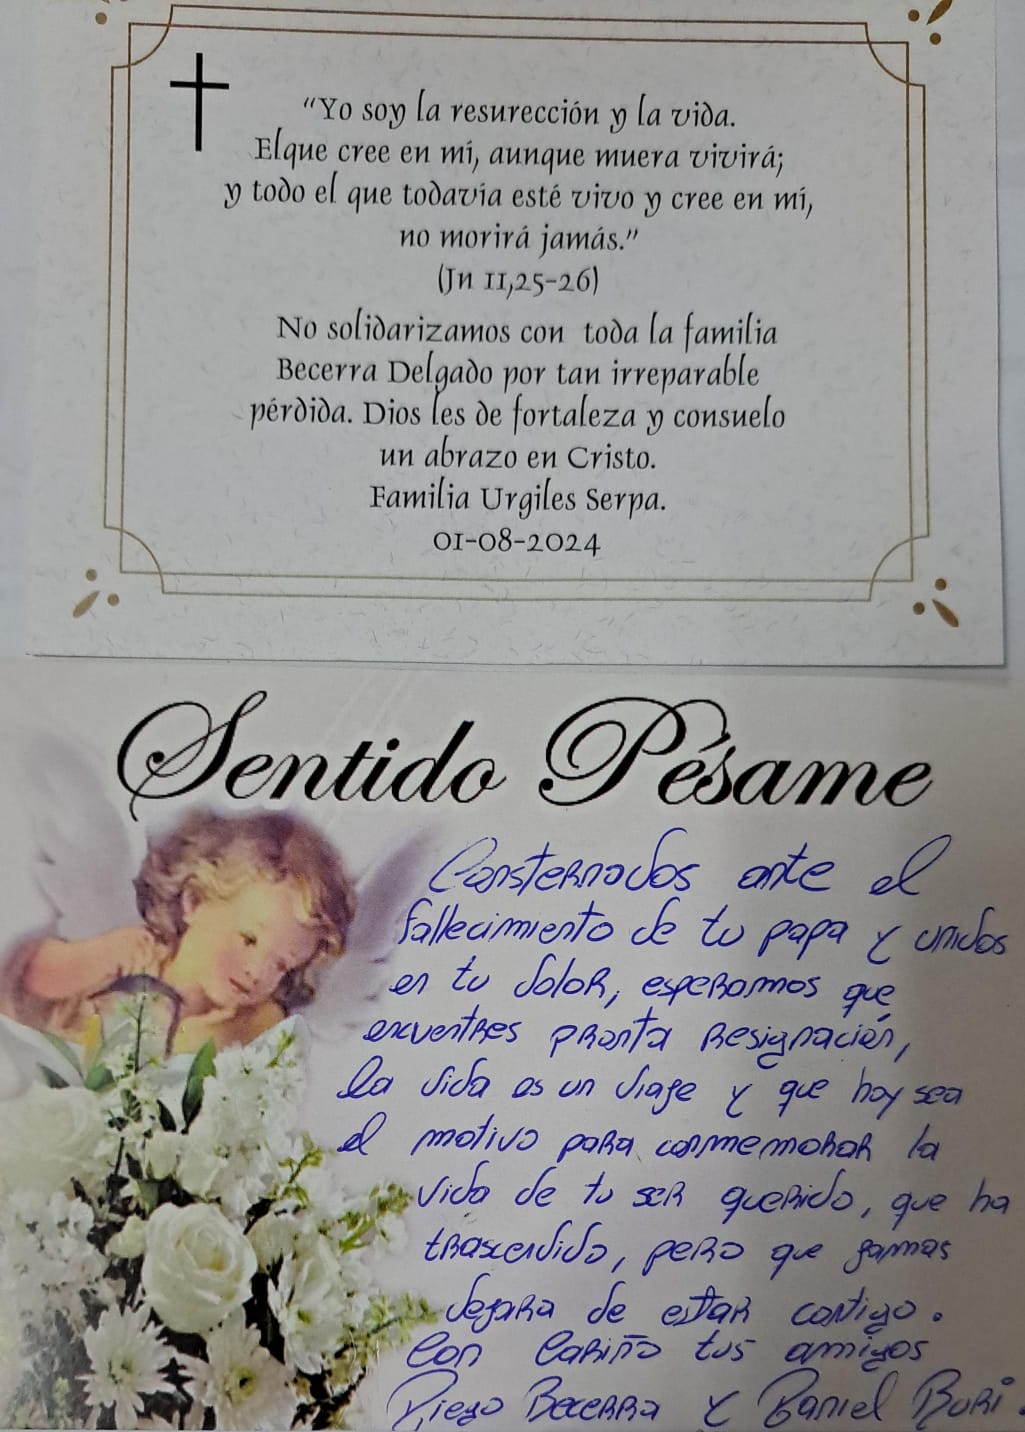 “Yo soy la resurección y la vida.
Elque cree en mí, aunque muera vivirá;
y todo el que todavía esté vivo y cree en mí,
no morirá jamás.”
(Jn 11,25-26)
No solidarizamos con toda la familia
Becerra Delgado por tan irreparable
pérdida. Dios les de fortaleza y consuelo
un abrazo en Cristo.
Familia Urgiles Serpa.
01-08-2024
Sentido Pésame
Consternados ante el
fallecimiento de tu papa y unidos
en tu dolor, esperamos que
encuentres pronta resignación,
la vida es un viaje y que hoy sea
el motivo para conmemorar la
vida de tu ser querido, que ha
trascendido, pero que jamas
dejara de estar contigo.
Con cariño tus amigos
Diego Becerra y Daniel Buri.